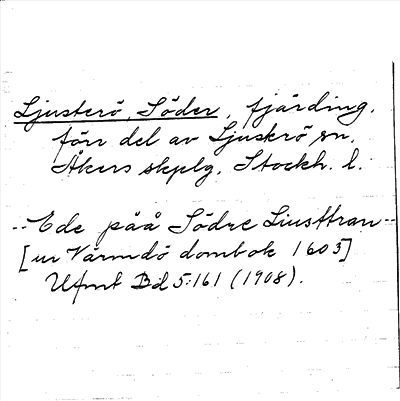 Ljusterö, Söder, fjärding.
förr del av Ljusterö sn.
Åkers skplg. Stockh. l.
-- Ede påå Södre Liusttran --
[ur Värmdö dombok 1603]
Ufmt Bd 5:161 (1908).